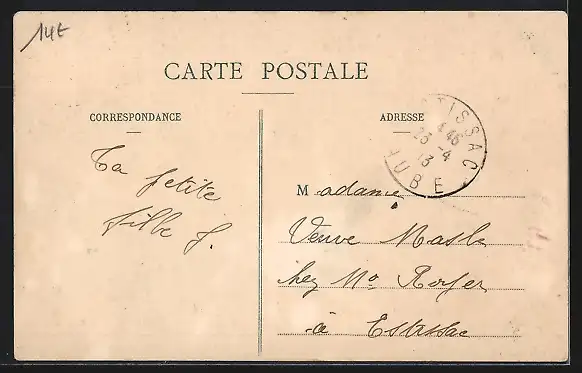 14t
CARTE POSTALE
CORRESPONDANCE
ADRESSE
TISSAC
4 45
23 - 4
13
AUBE
Ta petite
fille J.
Madame
Veuve Masle
chez Mr Royer
à Estissac